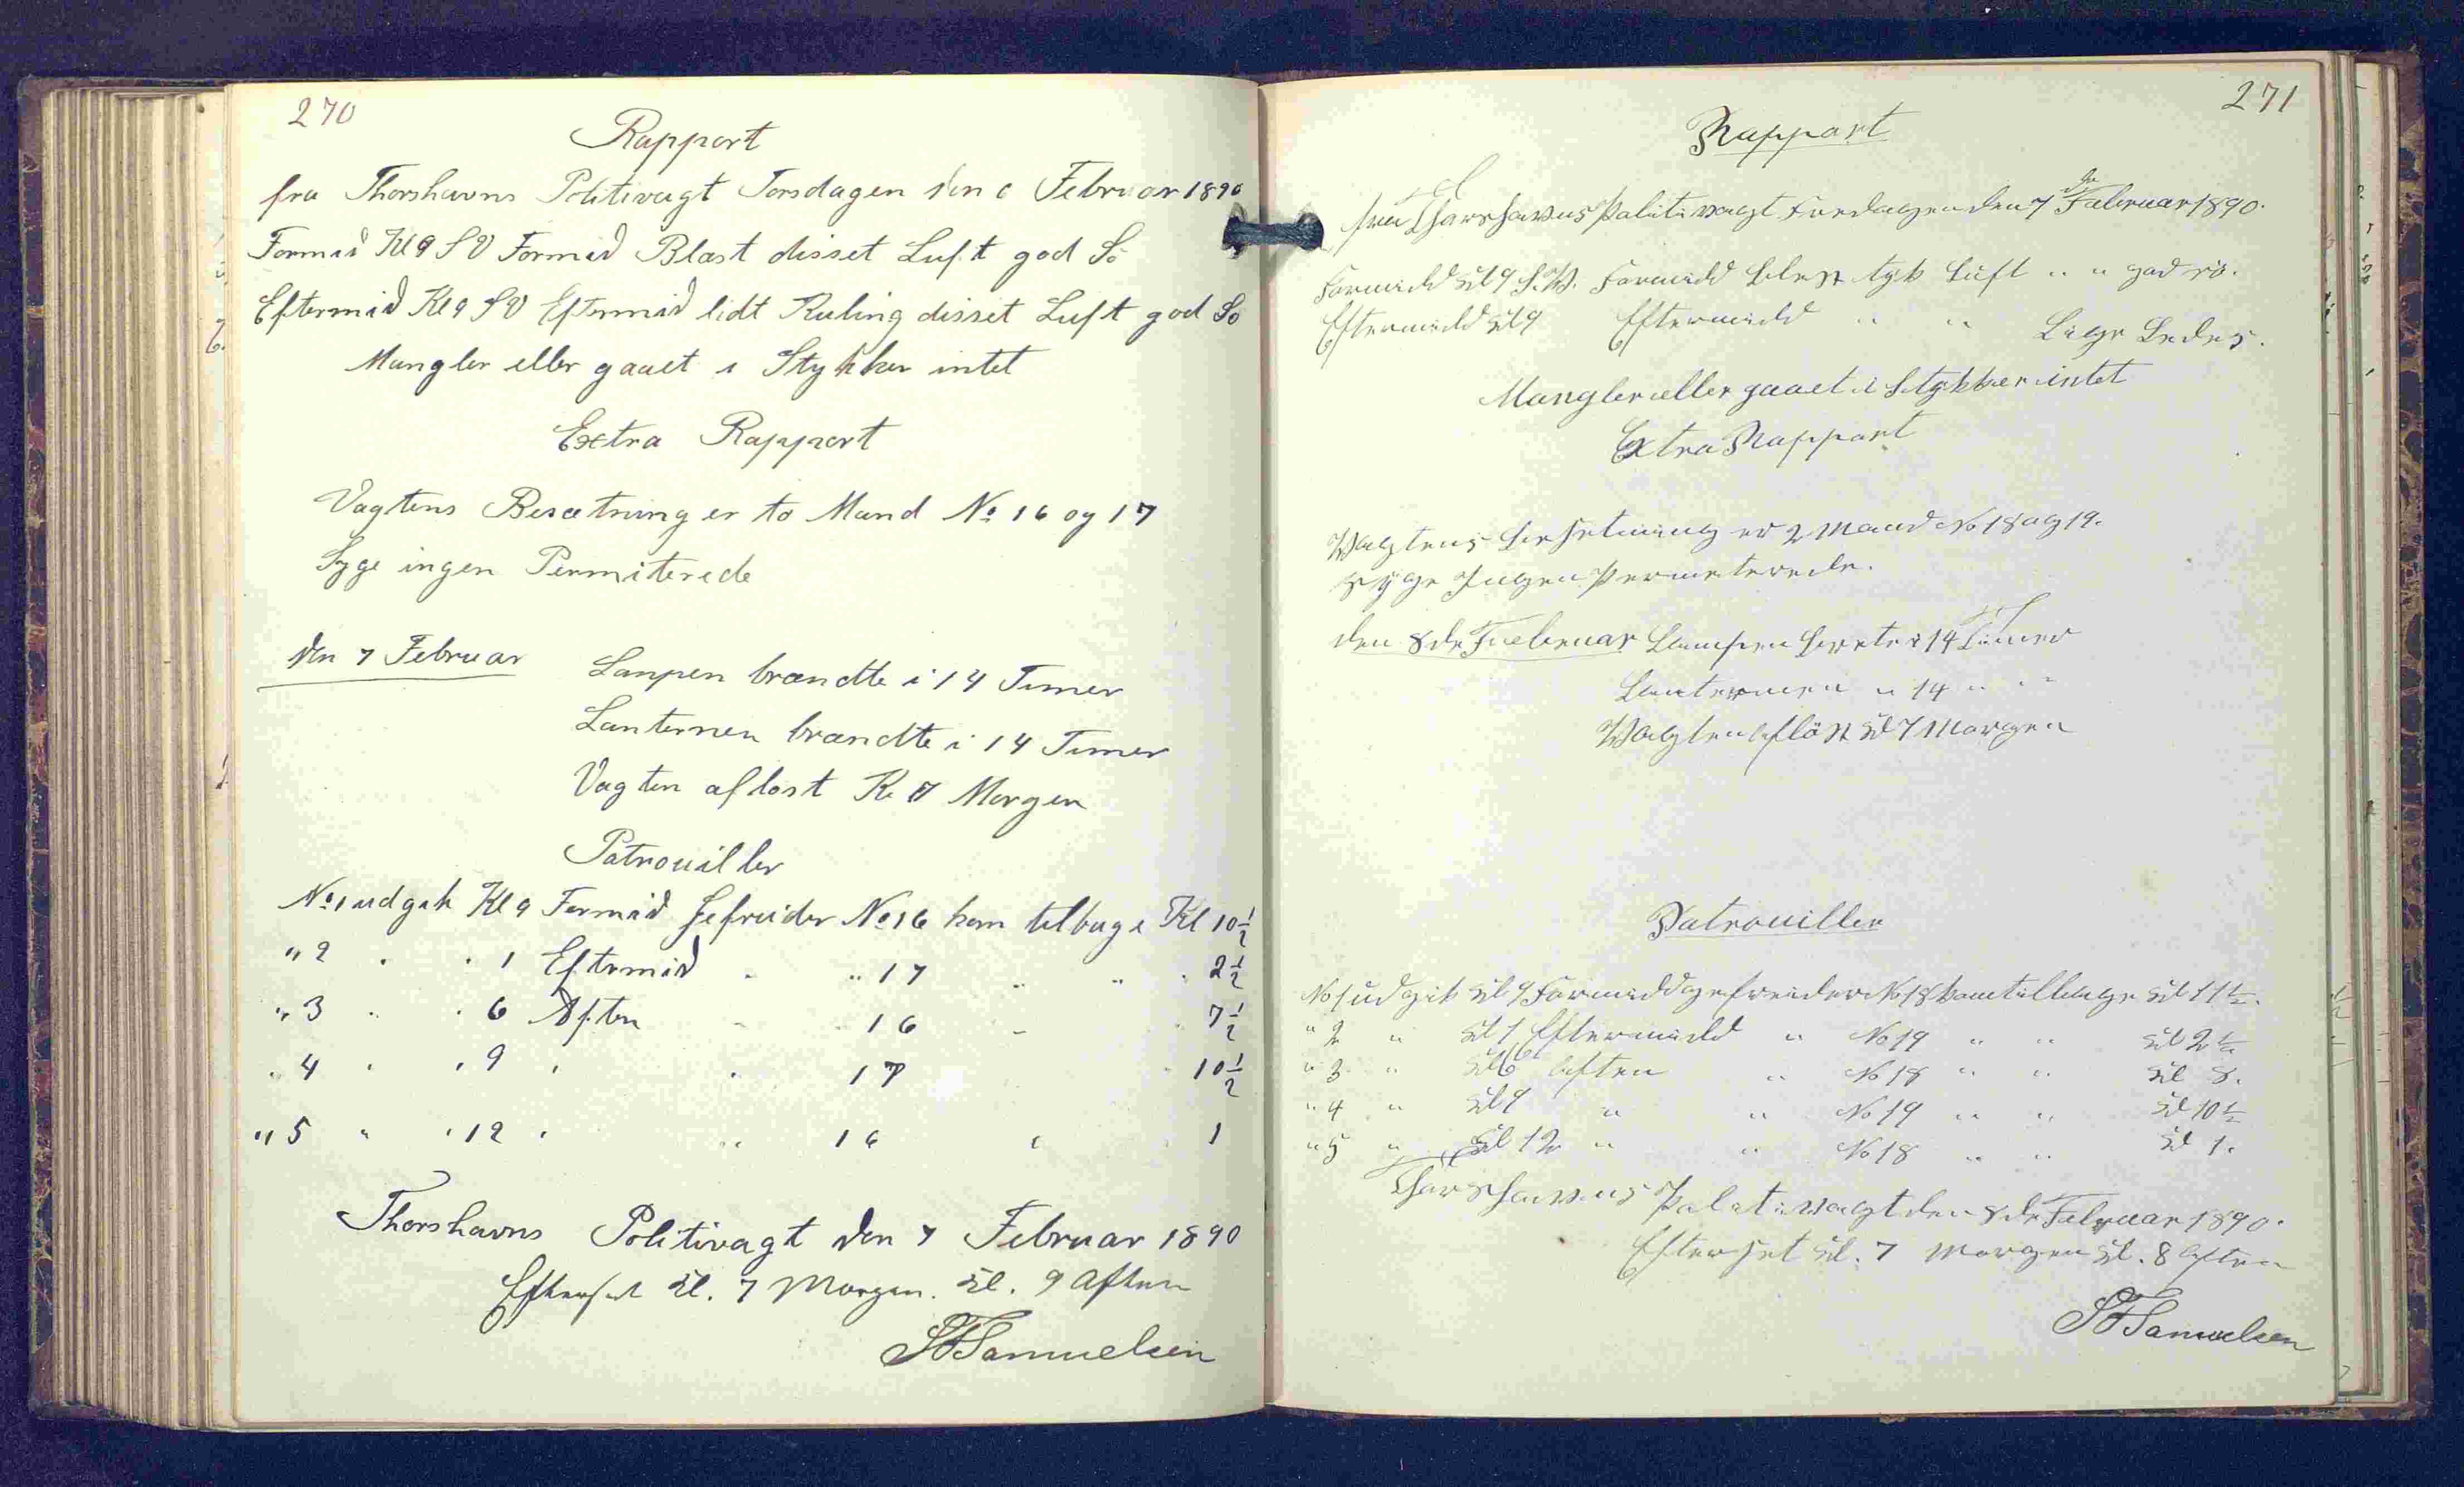 270
Rapport
fra Thorshavns Politivagt Torsdagen den 6 Februar 1890
Formid Kl 9 SV Formid Blæst disset Luft god Sö
Eftermid Kl 9 SV Eftermid lidt Kuling disset Luft god Sö
Mangler eller gaaet i Stykker intet
Extra Rapport
Vagtens Besætning er to Mand No 16 og 17
Syge ingen Permiterede
den 7 Februar Lampen brændte i 14 Timer
Lanternen brændte i 14 Timer
Vagten aflöst Kl 7 Morgen
Patrouiller
No 1 udgik Kl 9 Formid Gefreider No 16 kom tilbage Kl 10 1/2
" 2 " " 1 Eftermid " " 17 " " " 2 1/2
" 3 " " 6 Aften " " 16 " " 7 1/2
" 4 " " 9 " " 17 " " 10 1/2
" 5 " " 12 " " 16 " 1
Thorshavns Politivagt den 7 Februar 1890
Efterset Kl. 7 Morgen. Kl. 9 Aften
SFSamuelsen
271
Rapport
fra Thorshavns Politivagt Fredagen den 7 de Februar 1890.
Formidd Kl 9 S.V. Formidd blæst tyk Luft " " god sö.
Eftermidd Kl 9 Eftermidd " " Lige Ledes.
Mangler eller gaaet i Stykker intet
Extra Rapport
Vagtens besetning er 2 Mand No 18 og 19.
Syge Ingen Permeterede.
den 8de Februar Lampen brente i 14 Timer
Lanternen " 14 " "
Vagten aflöst Kl 7 Morgen
Patrouiller
No 1 udgik Kl 9 Formidd gefreider No 18 kom tilbage Kl 11 1/2.
" 2 " Kl 1 Eftermidd " No 19 " " Kl 2 1/2
" 3 " Kl 6 aften " No 18 " " Kl 8.
" 4 " Kl 9 " " No 19 " " Kl 10 1/2
" 5 " Kl 12 " " No 18 " " Kl 1.
Thorshavns Politivagt den 8de Februar 1890.
Efterset Kl. 7 Morgen Kl. 8 Aften
SFSamuelsen